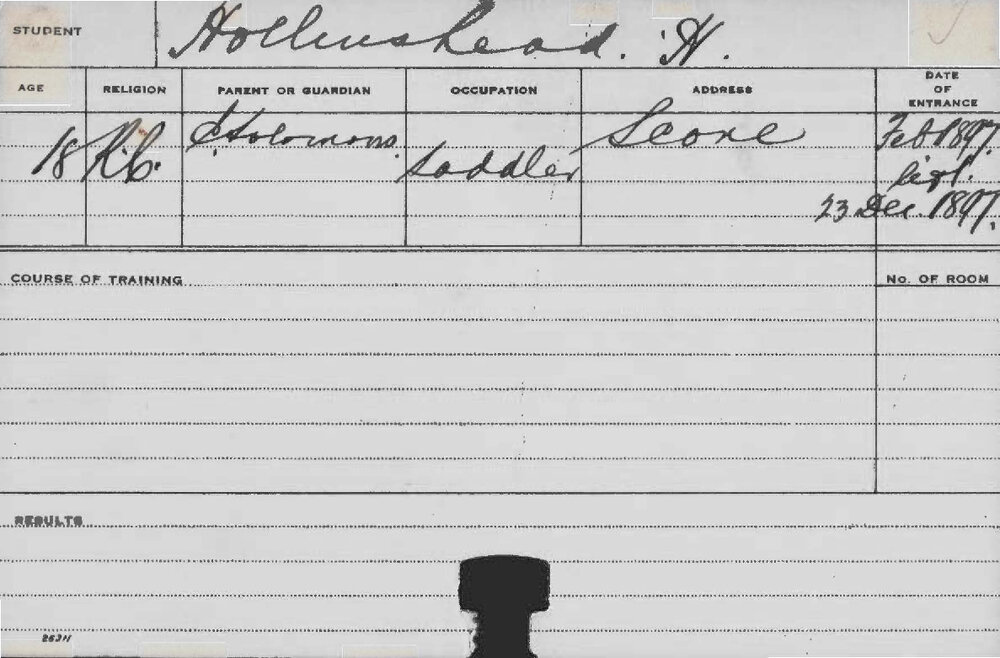 STUDENT Hollinshead. H.
AGE RELIGION PARENT OR GUARDIAN OCCUPATION ADDRESS DATE OF ENTRANCE
18 R.C. Solomons. Saddler Scone Feb 1897.
23 Dec. 1897.
COURSE OF TRAINING No. OF ROOM
RESULTS
26311